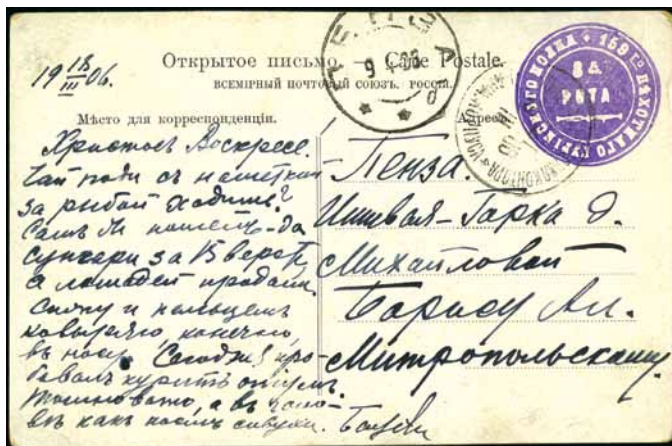 19 18/III 06.
Открытое письмо. — Carte Postale.
ВСЕМІРНЫЙ ПОЧТОВЫЙ СОЮЗЪ. РОССІЯ.
Мѣсто для корреспонденціи.
Адресъ
ПЕНЗА
9 4 06
159го ПѢХОТНАГО ГУРІЙСКАГО ПОЛКА
8я
РОТА
Христосъ Воскресе.
Чай поди съ наметкой
за рыбой ходишь?
Самъ
сухари за 15 верстъ
а лошадей продали.
Сижу и пальцемъ
ковыряю, конечно,
въ носу. Сегодня про-
бовалъ курить опіумъ.
а въ голо-
вѣ какъ послѣ сивухи.
Пенза.
Пѣшая-Горка д.
Михайловой
Борису Ал.
Митропольскому.